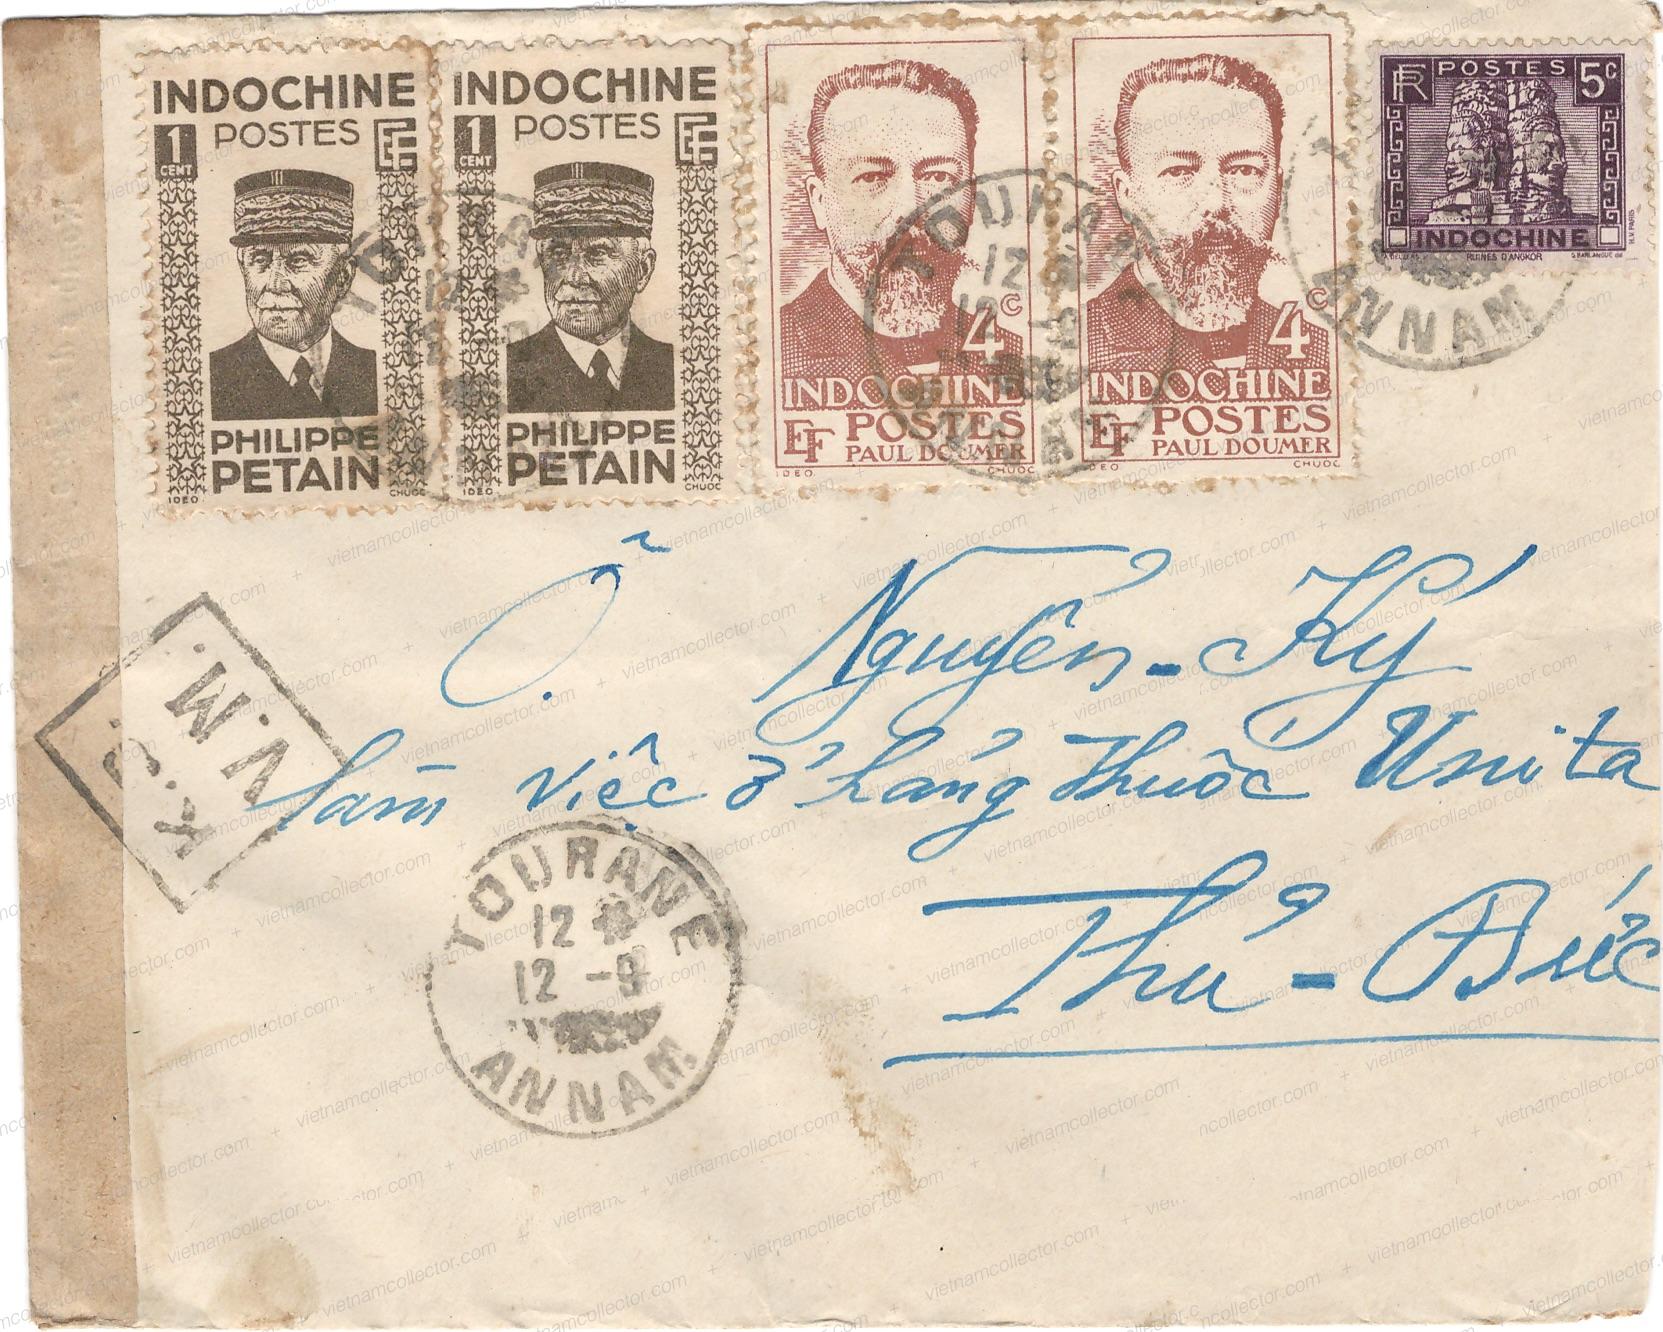 INDOCHINE
1 CENT
POSTES
EF
PHILIPPE
PETAIN
IDEO CHUOC
INDOCHINE
1 CENT
POSTES
EF
PHILIPPE
PETAIN
IDEO CHUOC
4c
INDOCHINE
EF POSTES
PAUL DOUMER
IDEO CHUOC
4c
INDOCHINE
EF POSTES
PAUL DOUMER
IDEO CHUOC
RF POSTES 5c
INDOCHINE
RUINES D'ANGKOR
H.V. PARIS
TOURANE
12
12 -9
ANNAM
Nguyễn-Ký
làm việc ở hãng thuốc Unita
Thủ-Đức
V.M.
TOURANE
12 *
12 -9
ANNAM
vietnamcollector.com